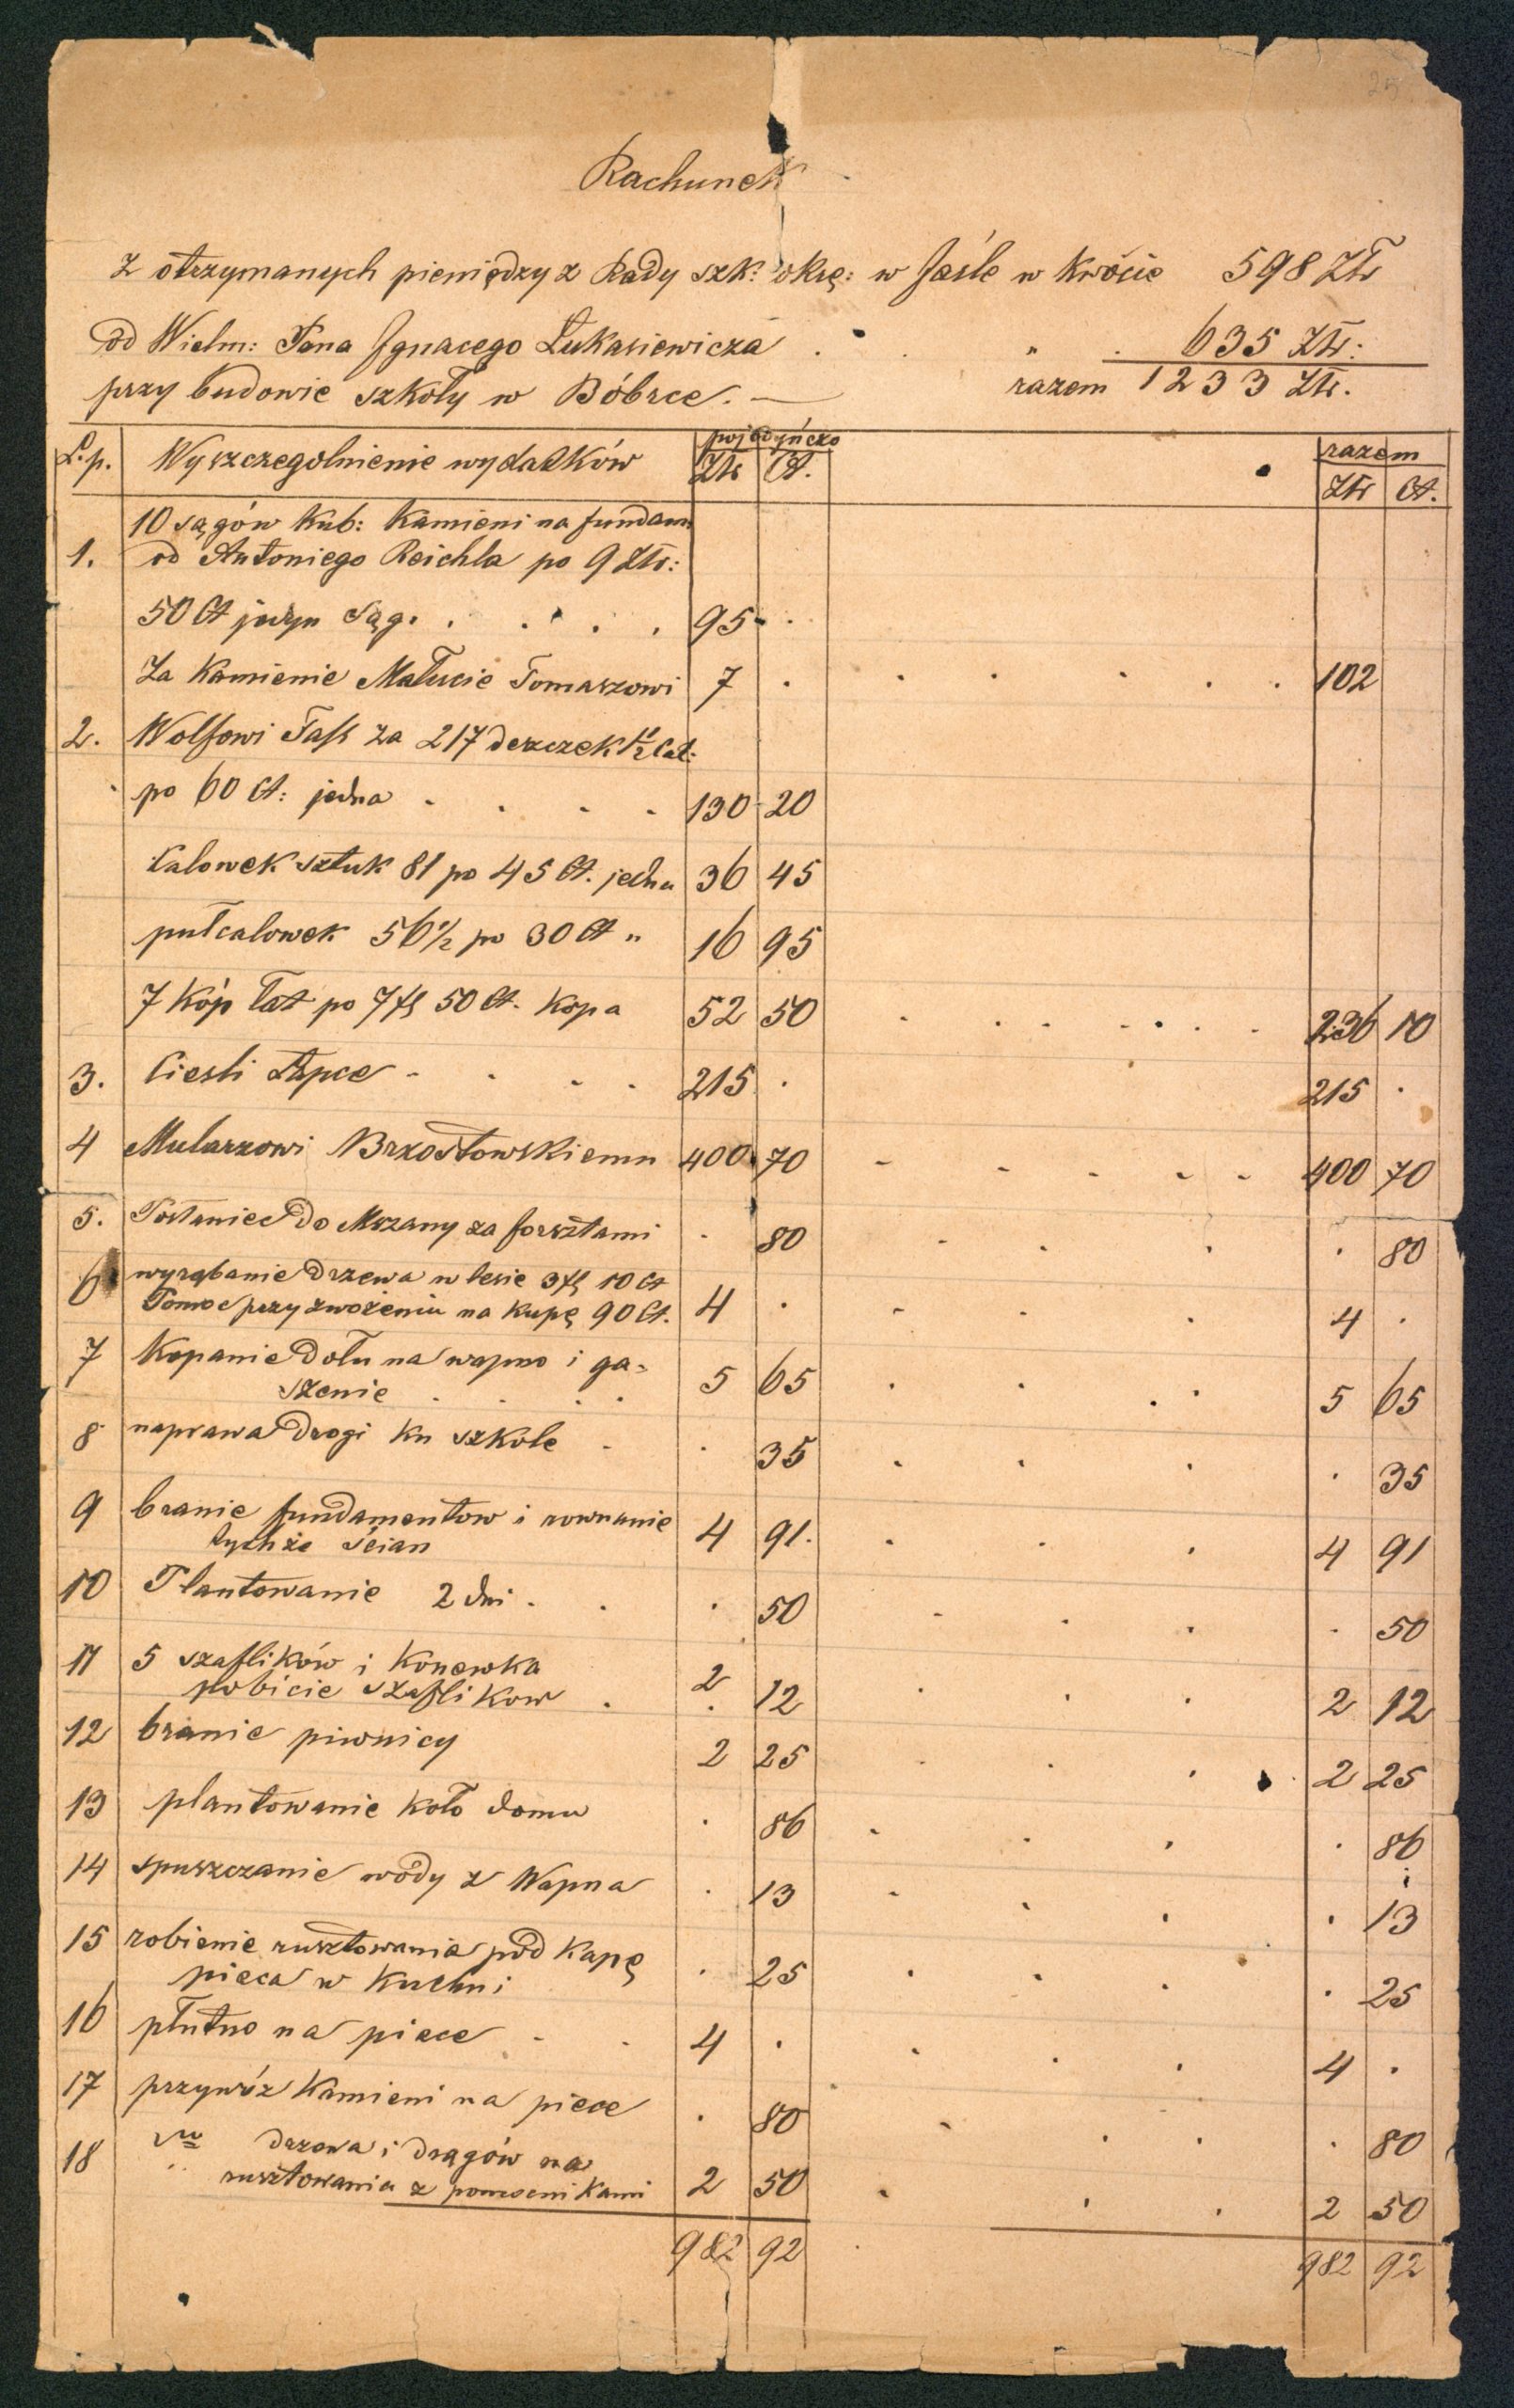 25
Rachunek
z otrzymanych pieniędzy z Rady szk: okrę: w Jaśle w kwócie 598 Złr
od Wielm: Pana Ignacego Łukasiewicza . . " . 635 Złr:
przy budowie szkoły w Bóbrce. — razem 1233 Złr.
L.p. Wyszczegolnienie wydatków pojedyńczo razem
Złr Ct. Złr Ct.
10 sągów kub: kamieni na fundam
1. od Antoniego Reichla po 9 Złr:
50 Ct jedyn sąg. . . . . 95 - .
Za kamienie Matusie Tomaszowi 7 . . . . . . 102
2. Wolfowi Fass za 217 deszczek 1 1/2 cal:
po 60 Ct: jedna . . . . 130 20
Calowek sztuk 81 po 45 Ct. jedna 36 45
pułcalowek 56 1/2 po 30 Ct " 16 95
7 kóp łat po 7 fl 50 Ct. kopa 52 50 . . . . . . . 236 10
3. Ciesli Łapce - . . . 215 . 215 .
4 Mularzowi Brzostowskiemu 400 70 - - - - - 400 70
5. Posłaniec do Mszany za forsztami . 80 - . . . 80
6 wyrąbanie drzewa w lesie 3 fl 10 Ct
Pomoc przy zwożeniu na kupę 90 Ct. 4 . - . . 4 .
7 Kopanie dołu na wapno i ga-
szenie . . . . 5 65 . . . 5 65
8 naprawa drogi ku szkole . . 35 . . . . 35
9 branie fundamentow i rownanie
tychże ścian 4 91. . . . 4 91
10 Plantowanie 2 dni . . . 50 - . . . 50
11 5 szaflików i konewka 2
pobicie szaflikow . . 12 . . . 2 12
12 branie piwnicy 2 25 . . . 2 25
13 plantowanie koło domu . 86 . . . . 86
14 spuszczanie wody z Wapna . 13 - . . . 13
15 robienie rusztowania pod kapę
pieca w kuchni . 25 . . . . 25
16 płutno na piece - . 4 . . . . 4 .
17 przywóz kamieni na piece . 80 . . . . 80
18 drzewa i drągów na
rusztowania z pomocnikami 2 50 . . . 2 50
982 92 . 982 92